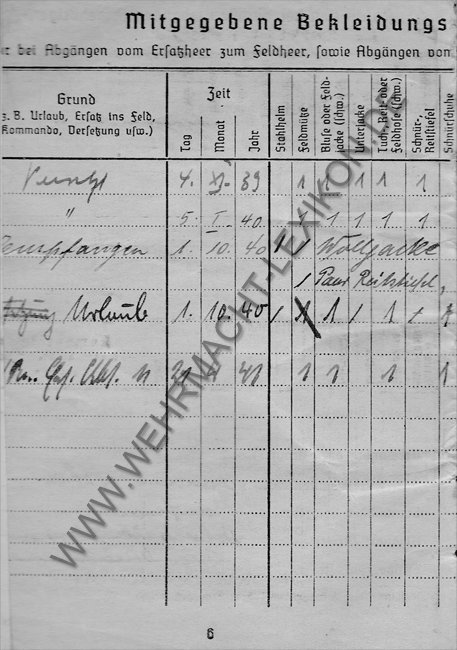 Mitgegebene Bekleidungs
er bei Abgängen vom Ersatzheer zum Feldheer, sowie Abgängen von
Grund
z. B. Urlaub, Ersatz ins Feld,
Kommando, Versetzung usw.)
Zeit
Tag
Monat
Jahr
Stahlhelm
Feldmütze
Bluse oder Feld-
jacke (schw.)
Unterjacke
Tuch-, Reit- oder
Feldhose (schw.)
Schnür-,
Reitstiefel
Schnürschuhe
4. XI. 39 1 1 1 1 1
" 5. I. 40. 1 1 1 1 1
empfangen 1. 10. 40 1 1 Wolljacke
1 Paar Reitstiefel,
Urlaub 1. 10. 40 1 1 1 1 1 1
41 1 1 1 1 1
WWW.WEHRMACHT-LEXIKON.DE
6